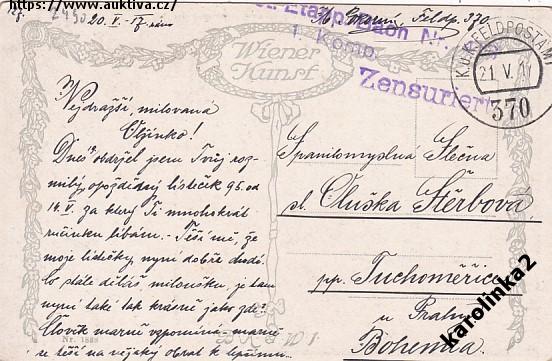 https://www.auktiva.cz/
20. V. - IV ráno
Feldp. 370.
Etappenbaon Nr.
1. Komp.
Zensuriert
K.u.K. FELDPOSTAMT
21. V. 1
370
Wiener
Kunst
Nejdražší, milovaná
Olginko!
Dnes obdržel jsem Tvůj roz-
milý opožděný lísteček 95. od
14. V. za který Ti mnohokrát
ručinku líbám. - Těší mě, že
moje lidečky nyní dobře
Co stále děláš, miloušku, je tam
nyní také tak krásně jako zde?
Člověk marně vzpomíná - marně
se těší na nějaký obrat k lepšímu.
Spanilomyslná Slečna
sl. Oluška Štěrbová
pp. Tuchoměřice
u Prahy
Bohemia
Nr. 1888
karolinka2